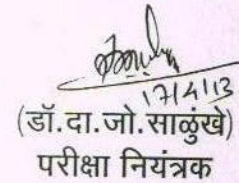 17/4/13
(डॉ.दा.जो.साळुंखे)
परीक्षा नियंत्रक